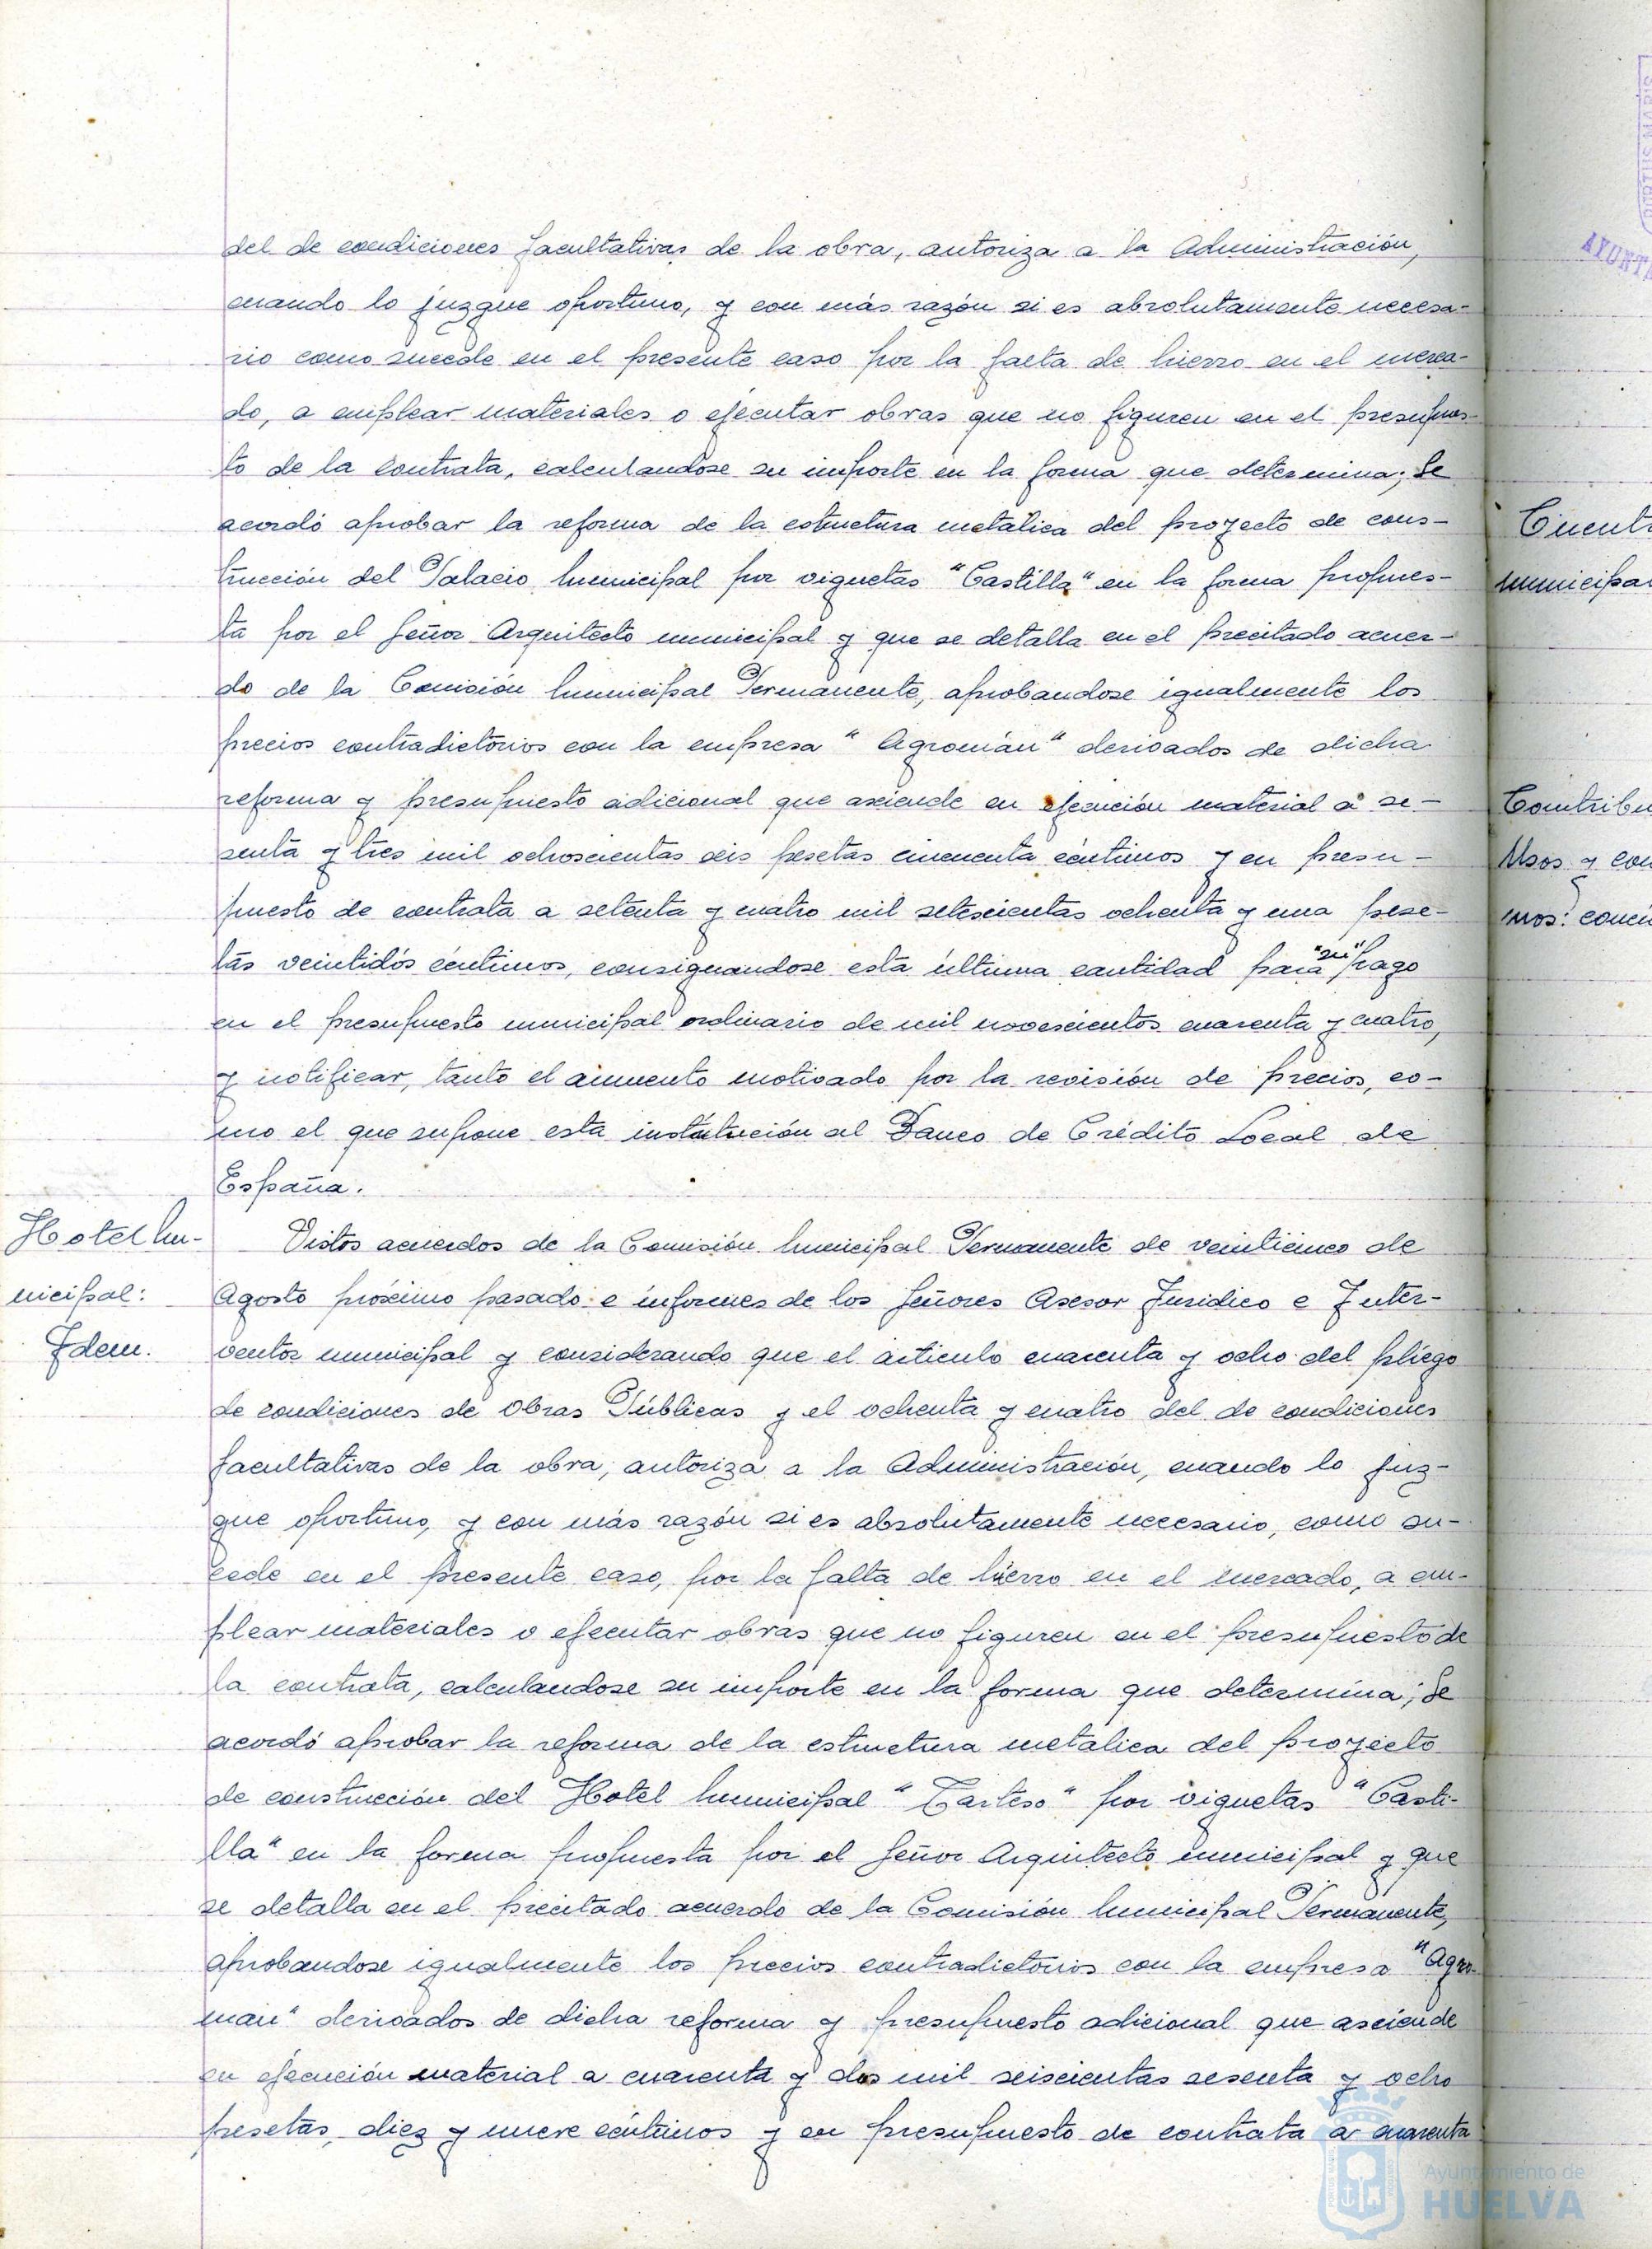 del de condiciones facultativas de la obra, autoriza a la Administración,
cuando lo juzgue oportuno, y con más razón si es absolutamente necesa-
rio como sucede en el presente caso por la falta de hierro en el merca-
do, a emplear materiales o ejecutar obras que no figuren en el presupues-
to de la contrata, calculandose su importe en la forma que determina; Se
acordó aprobar la reforma de la estructura metálica del proyecto de cons-
trucción del Palacio Municipal por viguetas "Castilla" en la forma propues-
ta por el Señor Arquitecto municipal y que se detalla en el precitado acuer-
do de la Comisión Municipal Permanente, aprobandose igualmente los
precios contradictorios con la empresa "Agromán" derivados de dicha
reforma y presupuesto adicional que asciende en ejecución material a se-
senta y tres mil ochoscientas seis pesetas cincuenta céntimos y en presu-
puesto de contrata a setenta y cuatro mil setescientas ochenta y una pese-
tas veintidós céntimos, consignandose esta última cantidad para "su" pago
en el presupuesto municipal ordinario de mil novescientos cuarenta y cuatro,
y notificar, tanto el aumento motivado por la revisión de precios, co-
mo el que supone esta institución al Banco de Crédito Local de
España.
Hotel Mu-
nicipal:
Idem.
Vistos acuerdos de la Comisión Municipal Permanente de veinticinco de
Agosto próximo pasado e informes de los Señores Asesor Jurídico e Inter-
ventor municipal y considerando que el artículo cuarenta y ocho del pliego
de condiciones de Obras Públicas y el ochenta y cuatro del de condiciones
facultativas de la obra, autoriza a la Administración, cuando lo juz-
gue oportuno, y con más razón si es absolutamente necesario, como su-
cede en el presente caso, por la falta de hierro en el mercado, a em-
plear materiales o ejecutar obras que no figuren en el presupuesto de
la contrata, calculandose su importe en la forma que determina; Se
acordó aprobar la reforma de la estructura metálica del proyecto
de construcción del Hotel Municipal "Tarteso" por viguetas "Casti-
lla" en la forma propuesta por el Señor Arquitecto municipal y que
se detalla en el precitado acuerdo de la Comisión Municipal Permanente,
aprobandose igualmente los precios contradictorios con la empresa "Agro-
mán" derivados de dicha reforma y presupuesto adicional que asciende
en ejecución material a cuarenta y dos mil seiscientas sesenta y ocho
pesetas, diez y nueve céntimos y en presupuesto de contrata a cuarenta
municipal
Usos y con
Ayuntamiento de
HUELVA